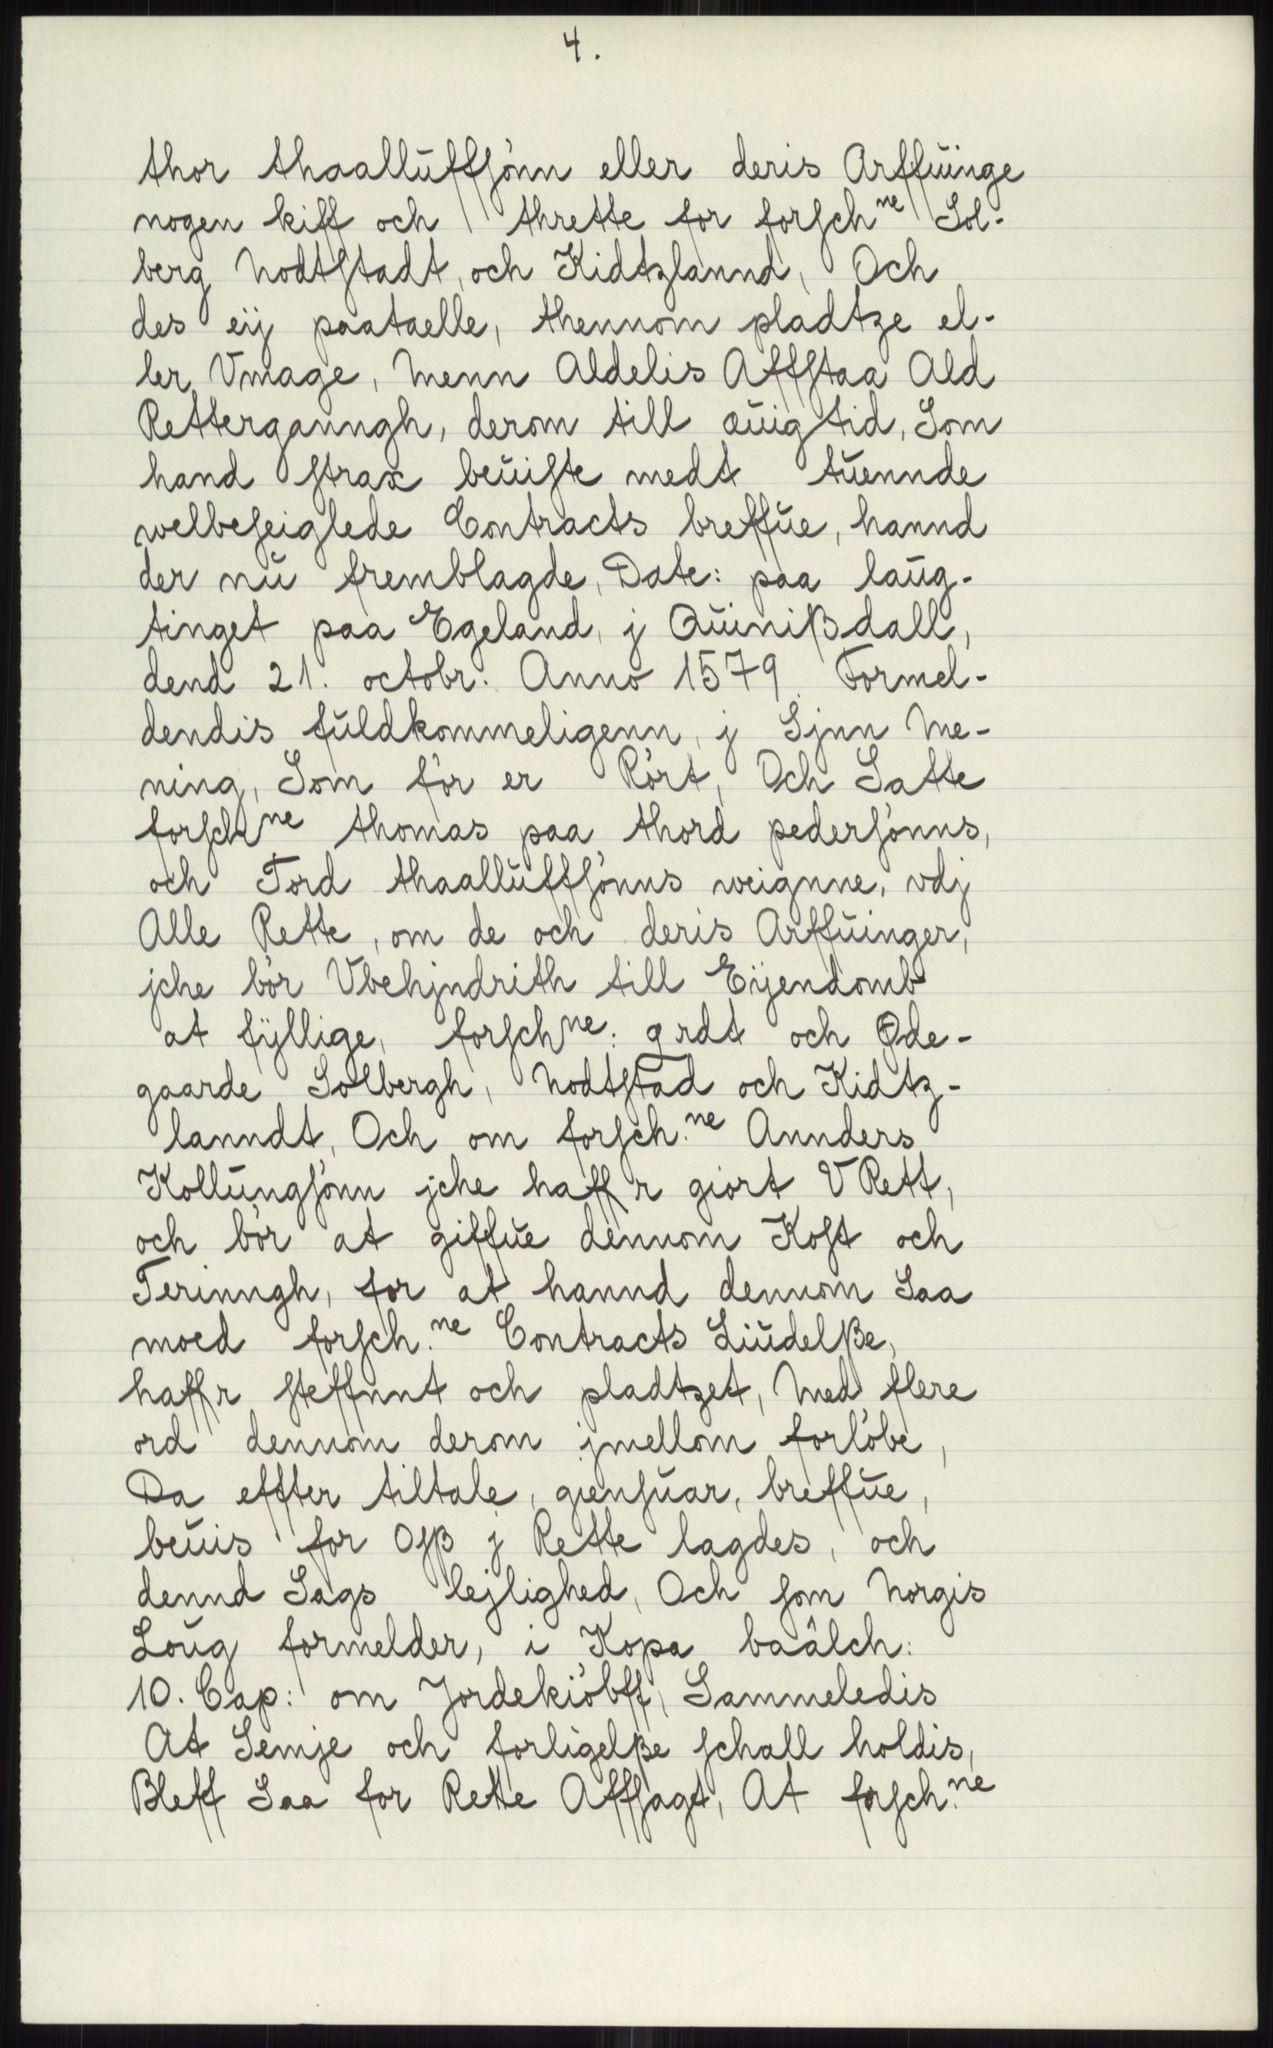 4.
thor thaalluffsönn eller deris Arffuinge
nogen kiff och thrette for forschne Sol-
berg Nodtstadt, och Kidtzlannd, Och
des eij paataelle, thennom pladtze el-
ler Vmage, Menn Aldelis Affstaa Ald
Rettergaungh, derom till æuig tid, Som
hand strax beuiste medt tuennde
welbeseiglede Contracts breffue, hannd
der nu fremblagde, Date: paa laug-
tinget paa Egeland, j Quinißdall,
dend 21. octobr. Anno 1579 Formel-
dendis fuldkommeligenn, j Sjnn Me-
ning, Som før er Rört, Och Satte
forschne thomas paa thord pedersönns,
och Tord thaalluffsönns weignne, vdj
Alle Rette, om de och deris Arffuinger,
jche bör Vbehjndrith till Eijendomb
at fyllige, forschne: grdt och Øde-
gaarde Solbergh, Nodtstad och Kidtz-
lanndt, Och om forsch.ne Annders
Kollungsönn jche haffr giort V Rett,
och bör at giffue dennom Kost och
Terinngh, for at hannd dennom Saa
moed forsch.ne Contracts Liudelße,
haffr steffnnt och pladtzet, Med flere
ord dennom derom jmellom forlöbe,
Da effter tiltale, giensuar, breffue,
beuis for Osß j Rette lagdes, och
dennd Sags lejlighed, Och som Norgis
Loug formelder, i Kopa baâlch:
10. Cap: om Jordekiöbff, Sammeledis
At Semje och forligelße schall holdis,
Bleff Saa for Rette Affsagt, At forsch.ne